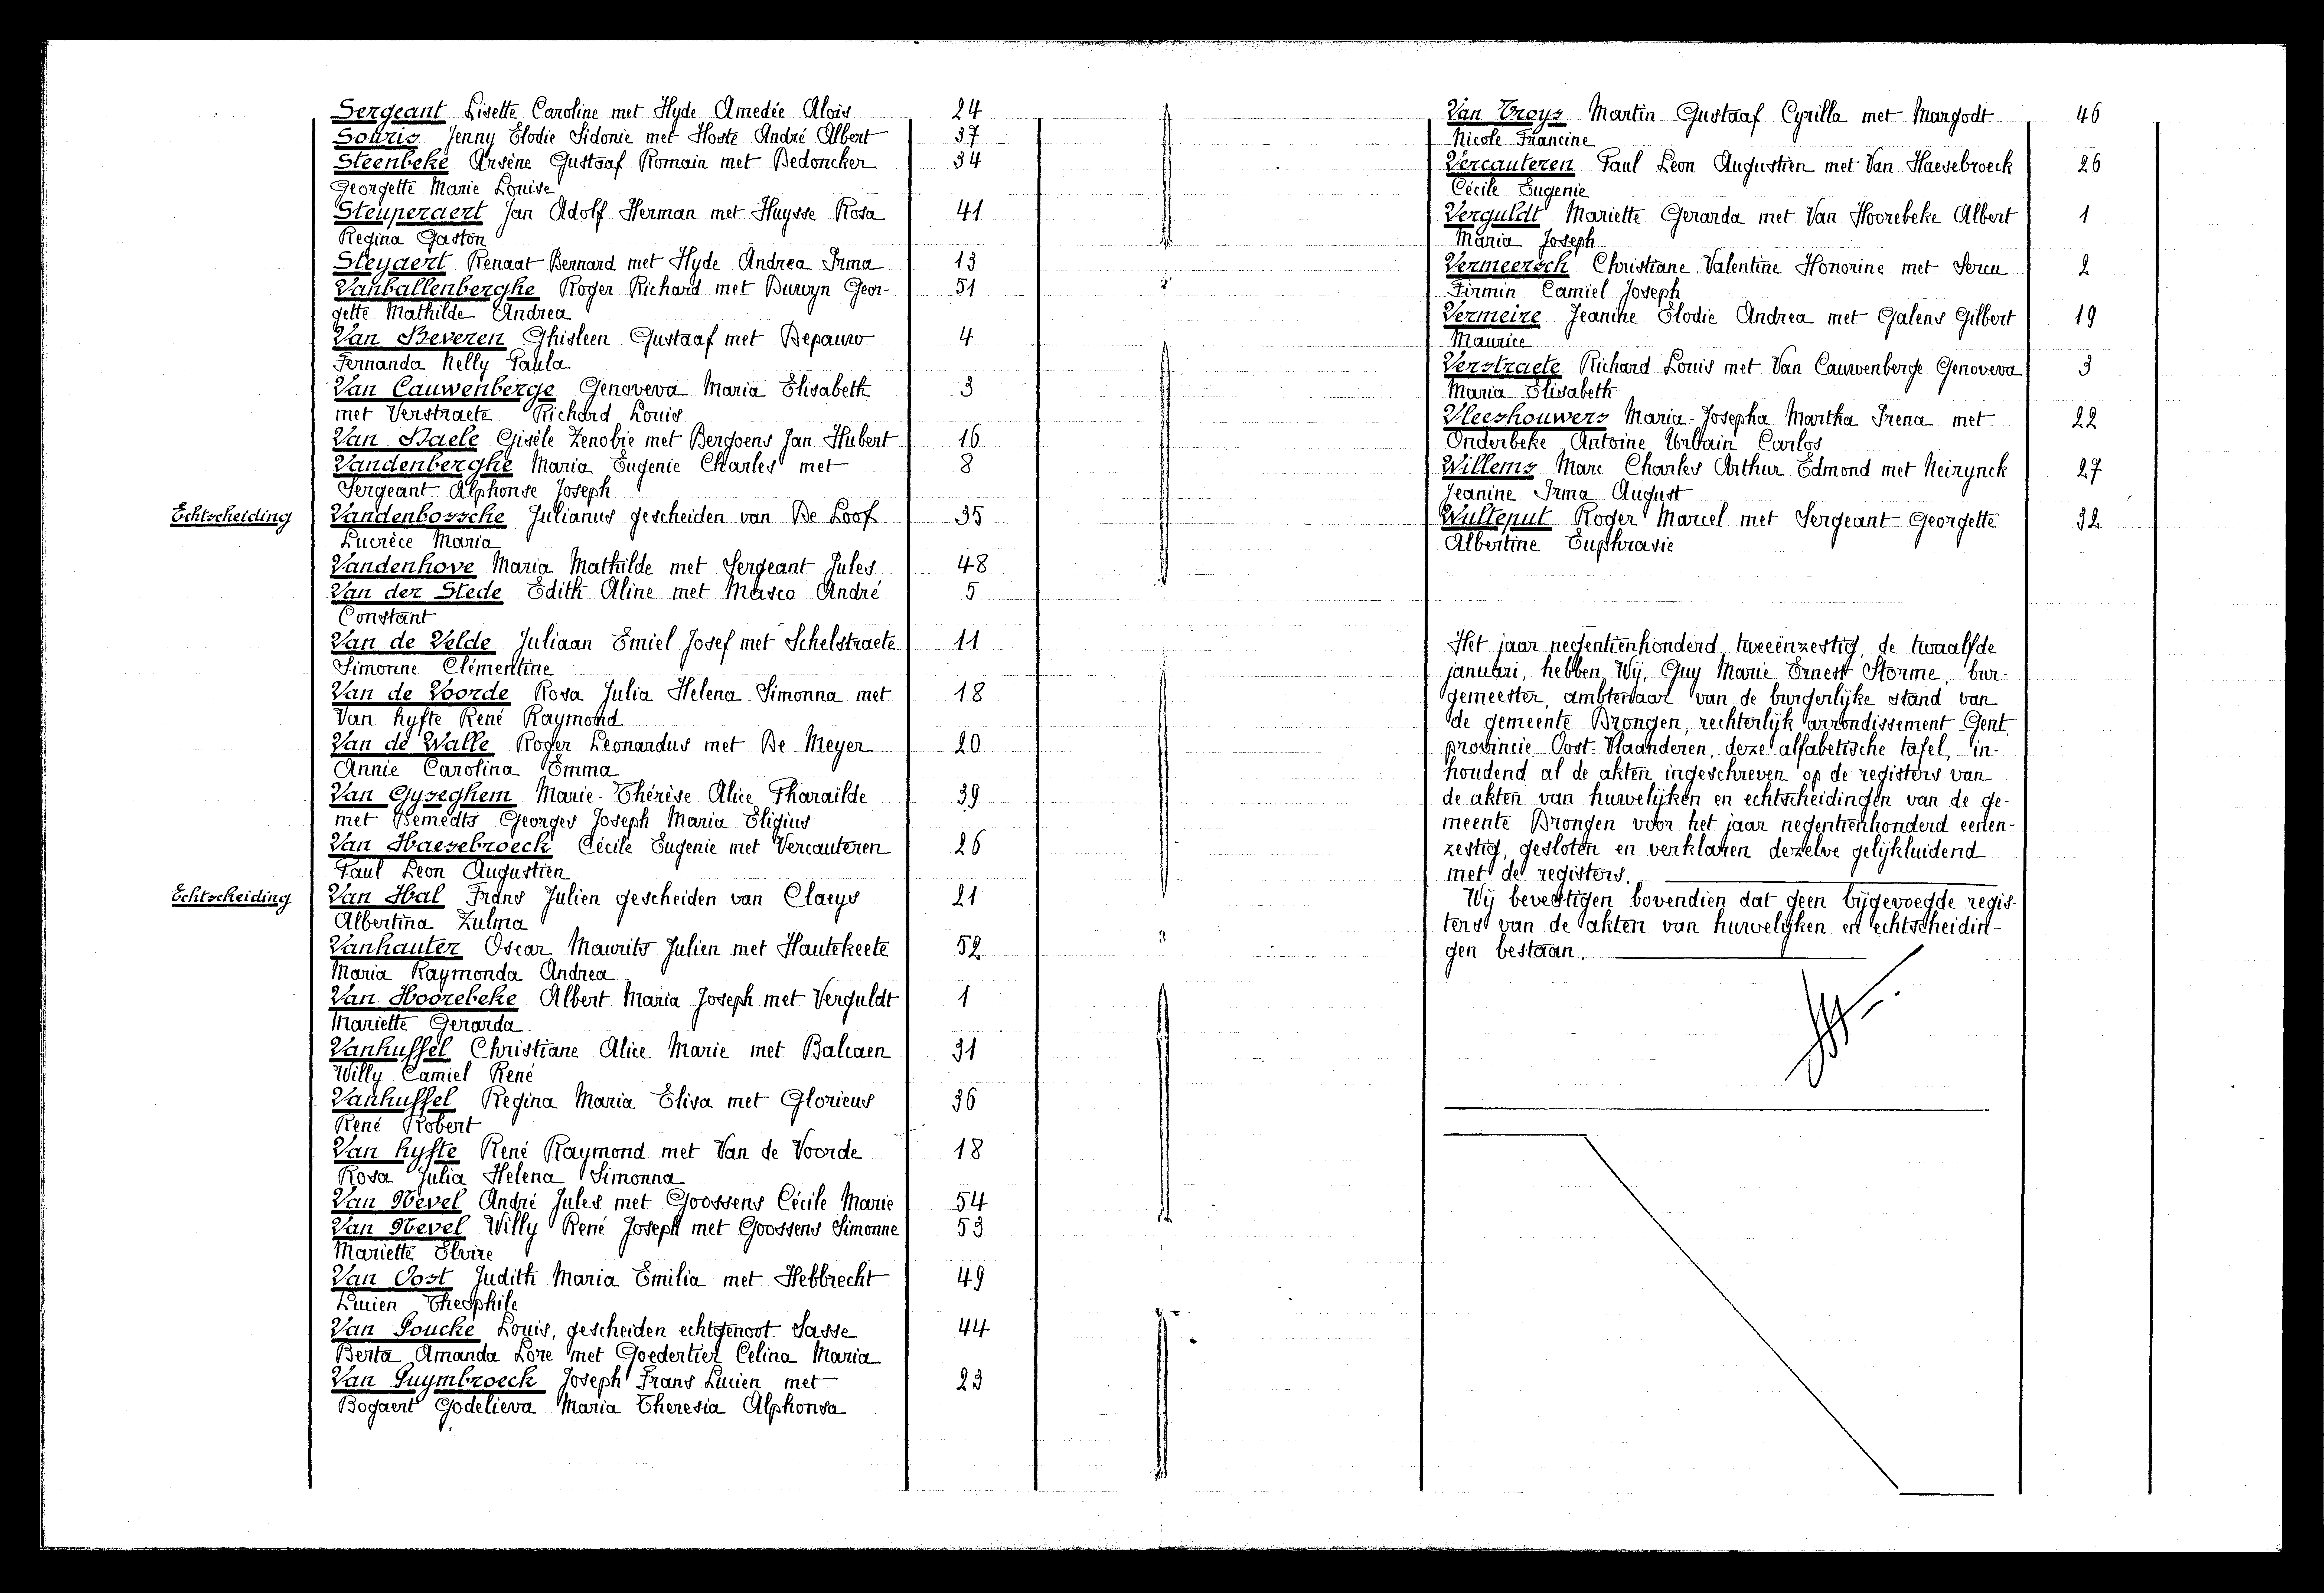 Sergeant Lisette Caroline met Hyde Amedée Aloïs 24
Souris Jenny Elodie Sidonie met Hoste André Albert 37
Steenbeke Arsène Gustaaf Romain met Dedoncker 34
Georgette Marie Louise
Steuperaert Jan Adolf Herman met Huysse Rosa 41
Regina Gaston
Steyaert Renaat Bernard met Hyde Andrea Irma 13
Vanballenberghe Roger Richard met Buwyn Geor- 51
gette Mathilde Andrea
Van Beveren Ghisleen Gustaaf met Depauw 4
Fernanda Nelly Paula
Van Cauwenberge Genoveva Maria Elisabeth 3
met Verstraete Richard Louis
Van Daele Gisèle Zenobie met Bergoens Jan Hubert 16
Vandenberghe Maria Eugenie Charles met 8
Sergeant Alphonse Joseph
Echtscheiding Vandenbossche Julianus gescheiden van De Loof 35
Lucrèce Maria
Vandenhove Maria Mathilde met Sergeant Jules 48
Van der Stede Edith Aline met Masco André 5
Constant
Van de Velde Juliaan Emiel Josef met Schelstraete 11
Simonne Clémentine
Van de Voorde Rosa Julia Helena Simonna met 18
Van hyfte René Raymond
Van de Walle Roger Leonardus met De Meyer 20
Annie Carolina Emma
Van Gyseghem Marie-Thérèse Alice Pharaïlde 39
met Demedts Georges Joseph Maria Eligius
Van Haesebroeck Cécile Eugenie met Vercauteren 26
Paul Leon Augustien
Echtscheiding Van Hal Frans Julien gescheiden van Claeys 21
Albertina Zulma
Vanhauter Oscar Maurits Julien met Hautekeete 52
Maria Raymonda Andrea
Van Hoorebeke Albert Maria Joseph met Verguldt 1
Mariette Gerarda
Vanhuffel Christiane Alice Marie met Balcaen 31
Willy Camiel René
Vanhuffel Regina Maria Elisa met Glorieus 36
René Robert
Van hyfte René Raymond met Van de Voorde 18
Rosa Julia Helena Simonna
Van Nevel André Jules met Goossens Cécile Marie 54
Van Nevel Willy René Joseph met Goossens Simonne 53
Mariette Elvire
Van Oost Judith Maria Emilia met Hebbrecht 49
Lucien Theophile
Van Poucke Louis, gescheiden echtgenoot Sasse 44
Berta Amanda Lore met Goedertier Celina Maria
Van Puymbroeck Joseph Frans Lucien met 23
Bogaert Godelieva Maria Theresia Alphonsa
Van Troys Martin Gustaaf Cyrilla met Margodt 46
Nicole Francine
Vercauteren Paul Leon Augustien met Van Haesebroeck 26
Cécile Eugenie
Verguldt Mariette Gerarda met Van Hoorebeke Albert 1
Maria Joseph
Vermeersch Christiane Valentine Honorine met Sercu 2
Firmin Camiel Joseph
Vermeire Jeanine Elodie Andrea met Galens Gilbert 19
Maurice
Verstraete Richard Louis met Van Cauwenberge Genoveva 3
Maria Elisabeth
Vleeshouwers Maria-Josepha Martha Irena met 22
Onderbeke Antoine Urbain Carlos
Willems Marc Charles Arthur Edmond met Neirynck 27
Jeanine Irma August
Wulteput Roger Marcel met Sergeant Georgette 32
Albertine Euphrasie
Het jaar negentienhonderd tweeënzestig, de twaalfde
januari, hebben Wij, Guy Marie Ernest Storme, bur-
gemeester, ambtenaar van de burgerlijke stand van
de gemeente Drongen, rechterlijk arrondissement Gent,
provincie Oost-Vlaanderen, deze alfabetische tafel, in-
houdend al de akten ingeschreven op de registers van
de akten van huwelijken en echtscheidingen van de ge-
meente Drongen voor het jaar negentienhonderd eenen-
zestig, gesloten en verklaren dezelve gelijkluidend
met de registers.
Wij bevestigen bovendien dat geen bijgevoegde regis-
ters van de akten van huwelijken en echtscheidin-
gen bestaan.